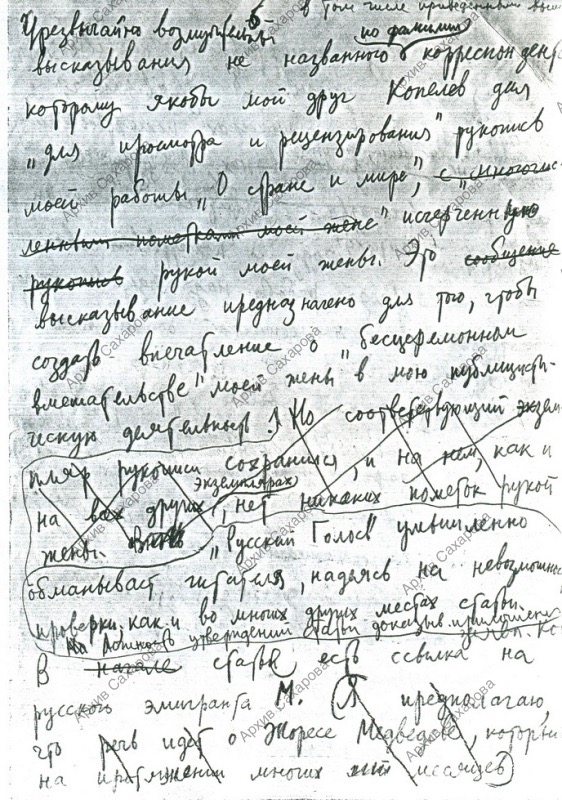 в том числе приведенным выш
Чрезвычайно возмутительны
по фамилии
высказывания не названного корреспондента
которому якобы мой друг Копелев дал
„для просмотра и рецензирования" рукопись
моей работы „О стране и мире", с „многочис-
ленными пометками моей жены" исчерченную
рукопись рукой моей жены. Это сообщение
высказывание предназначено для того, чтобы
создать впечатление о „бесцеремонном
вмешательстве" моей жены в мою публицисти-
ческую деятельность. Но соответствующий экзем-
пляр рукописи сохранился, и на нем, как и
экземплярах
на всех других, нет никаких пометок рукой
жены. „Русский Голос" умышленно
обманывает читателя, надеясь на невозможность
проверки, как и во многих других местах статьи.
утверждений статьи
В начале статьи есть ссылка на
русского эмигранта М. (Я предполагаю,
что речь идет о Жоресе Медведеве, который
на протяжении многих лет месяцев)
Архив Сахарова